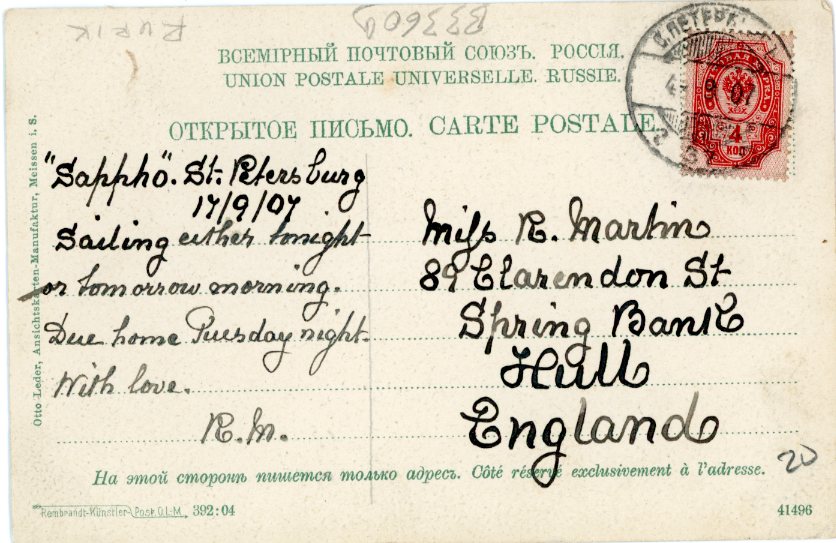 RURIK
B33600
ВСЕМІРНЫЙ ПОЧТОВЫЙ СОЮЗЪ. РОССІЯ.
UNION POSTALE UNIVERSELLE. RUSSIE.
ОТКРЫТОЕ ПИСЬМО. CARTE POSTALE.
С.ПЕТЕРБ
07
4
КОП
"Sappho". St. Petersburg
17/9/07
Sailing either tonight
or tomorrow morning.
Due home Tuesday night.
With love.
R.M.
Miss R. Martin
89 Clarendon St
Spring Bank
Hull
England
20
На этой сторонѣ пишется только адресъ. Côté réservé exclusivement à l'adresse.
Rembrandt-Künstler-Post. O.L.M. 392:04
41496
Otto Leder, Ansichtskarten-Manufaktur, Meissen i. S.